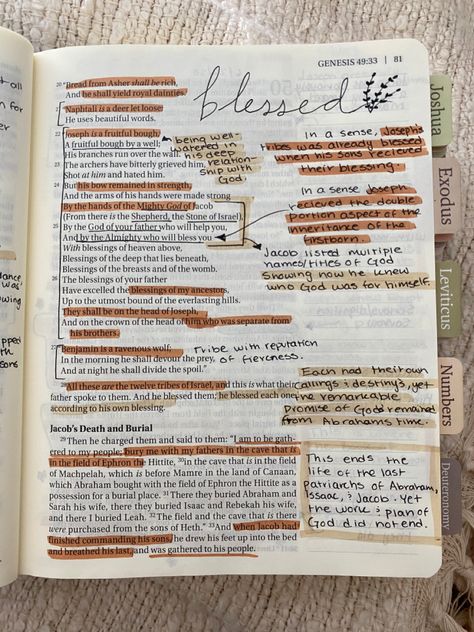 GENESIS 49:33 | 81
blessed
20 "Bread from Asher shall be rich,
And he shall yield royal dainties.
21 Naphtali is a deer let loose;
He uses beautiful words.
22 Joseph is a fruitful bough,
A fruitful bough by a well;
His branches run over the wall.
23 The archers have bitterly grieved him,
Shot at him and hated him.
24 But his bow remained in strength,
And the arms of his hands were made strong
By the hands of the Mighty God of Jacob
(From there is the Shepherd, the Stone of Israel),
25 By the God of your father who will help you,
And by the Almighty who will bless you
With blessings of heaven above,
Blessings of the deep that lies beneath,
Blessings of the breasts and of the womb.
26 The blessings of your father
Have excelled the blessings of my ancestors,
Up to the utmost bound of the everlasting hills.
They shall be on the head of Joseph,
And on the crown of the head of him who was separate from
his brothers.
27 Benjamin is a ravenous wolf;
In the morning he shall devour the prey,
And at night he shall divide the spoil."
28 All these are the twelve tribes of Israel, and this is what their
father spoke to them. And he blessed them; he blessed each one
according to his own blessing.
Jacob's Death and Burial
29 Then he charged them and said to them: "I am to be gath-
ered to my people; bury me with my fathers in the cave that is
in the field of Ephron the Hittite, 30 in the cave that is in the field
of Machpelah, which is before Mamre in the land of Canaan,
which Abraham bought with the field of Ephron the Hittite as a
possession for a burial place. 31 There they buried Abraham and
Sarah his wife, there they buried Isaac and Rebekah his wife,
and there I buried Leah. 32 The field and the cave that is there
were purchased from the sons of Heth." 33 And when Jacob had
finished commanding his sons, he drew his feet up into the bed
and breathed his last, and was gathered to his people.
being well-
watered in
his deep
relation-
ship with
God.
In a sense, Josephs
tribes was already blessed
when his sons recieved
their blessing.
In a sense Joseph
recieved the double
portion aspect of the
inheritance of the
firstborn.
Jacob listed multiple
names/titles of God
showing now he knew
who God was for himself.
Tribe with reputation
of fierceness.
Each had their own
callings & destinys, yet
the remarkable
Promise of God remained
from Abrahams time.
This ends the
life of the last
patriarchs of Abraham,
Issaac, & Jacob. Yet
the work & plan of
God did not end.
Joshua
Exodus
Leviticus
Numbers
Deuteronomy